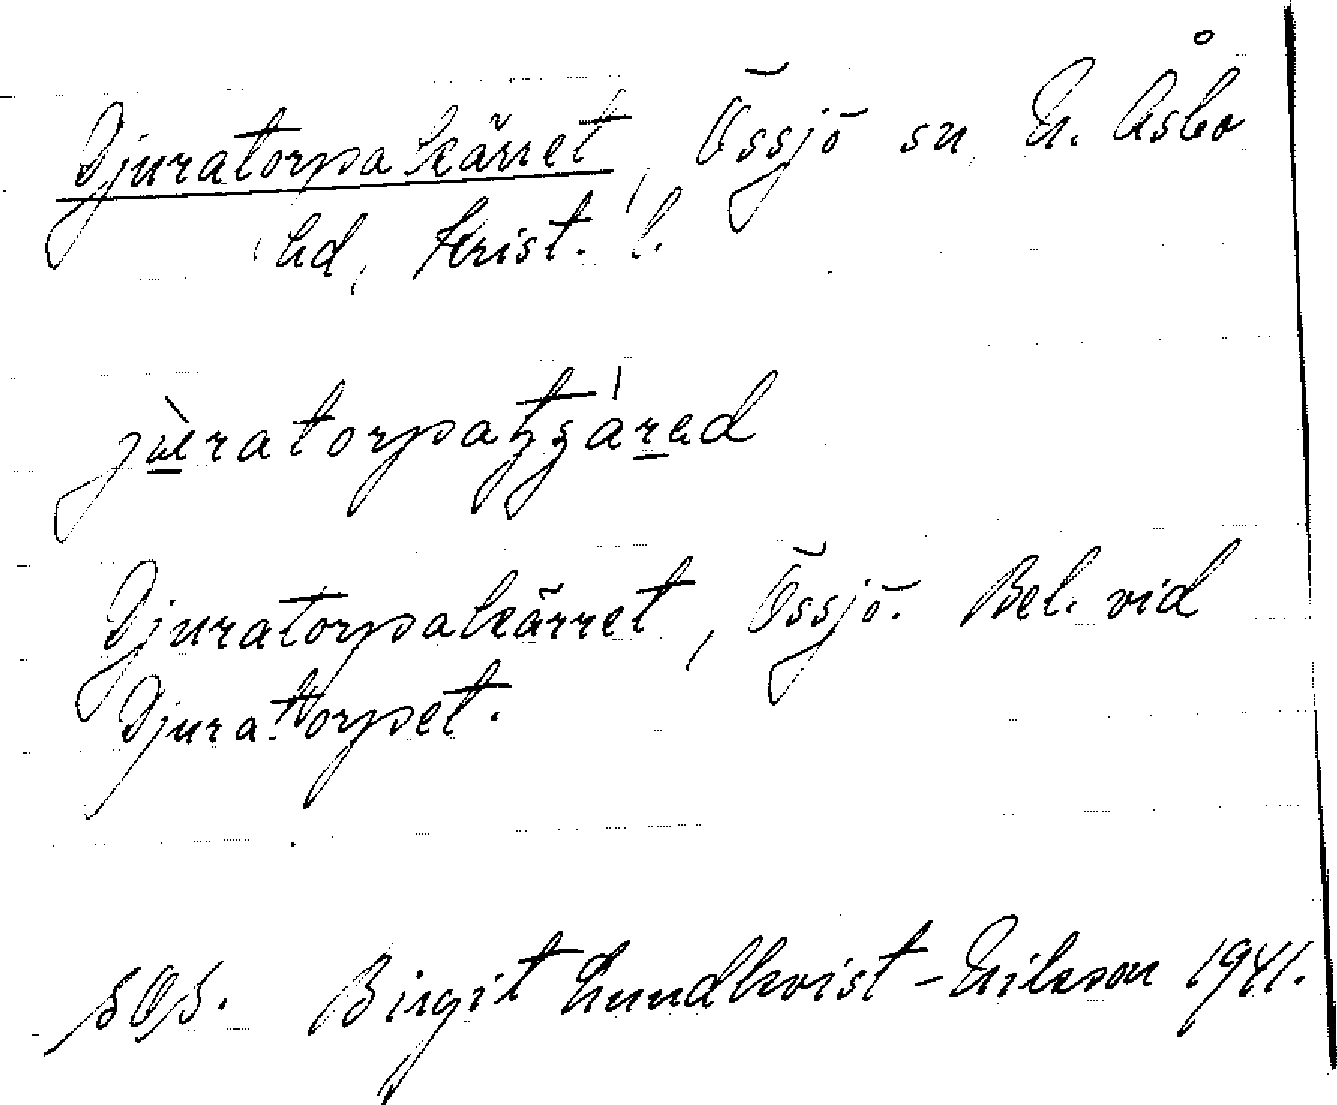 Djuratorpakärret, Össjö sn, N. Åsbo
hd, Krist. l.
Djuratorpakärret, Össjö. Bel. vid
Djuratorpet.
SOS. Birgit Lundkvist-Nilsson 1941.